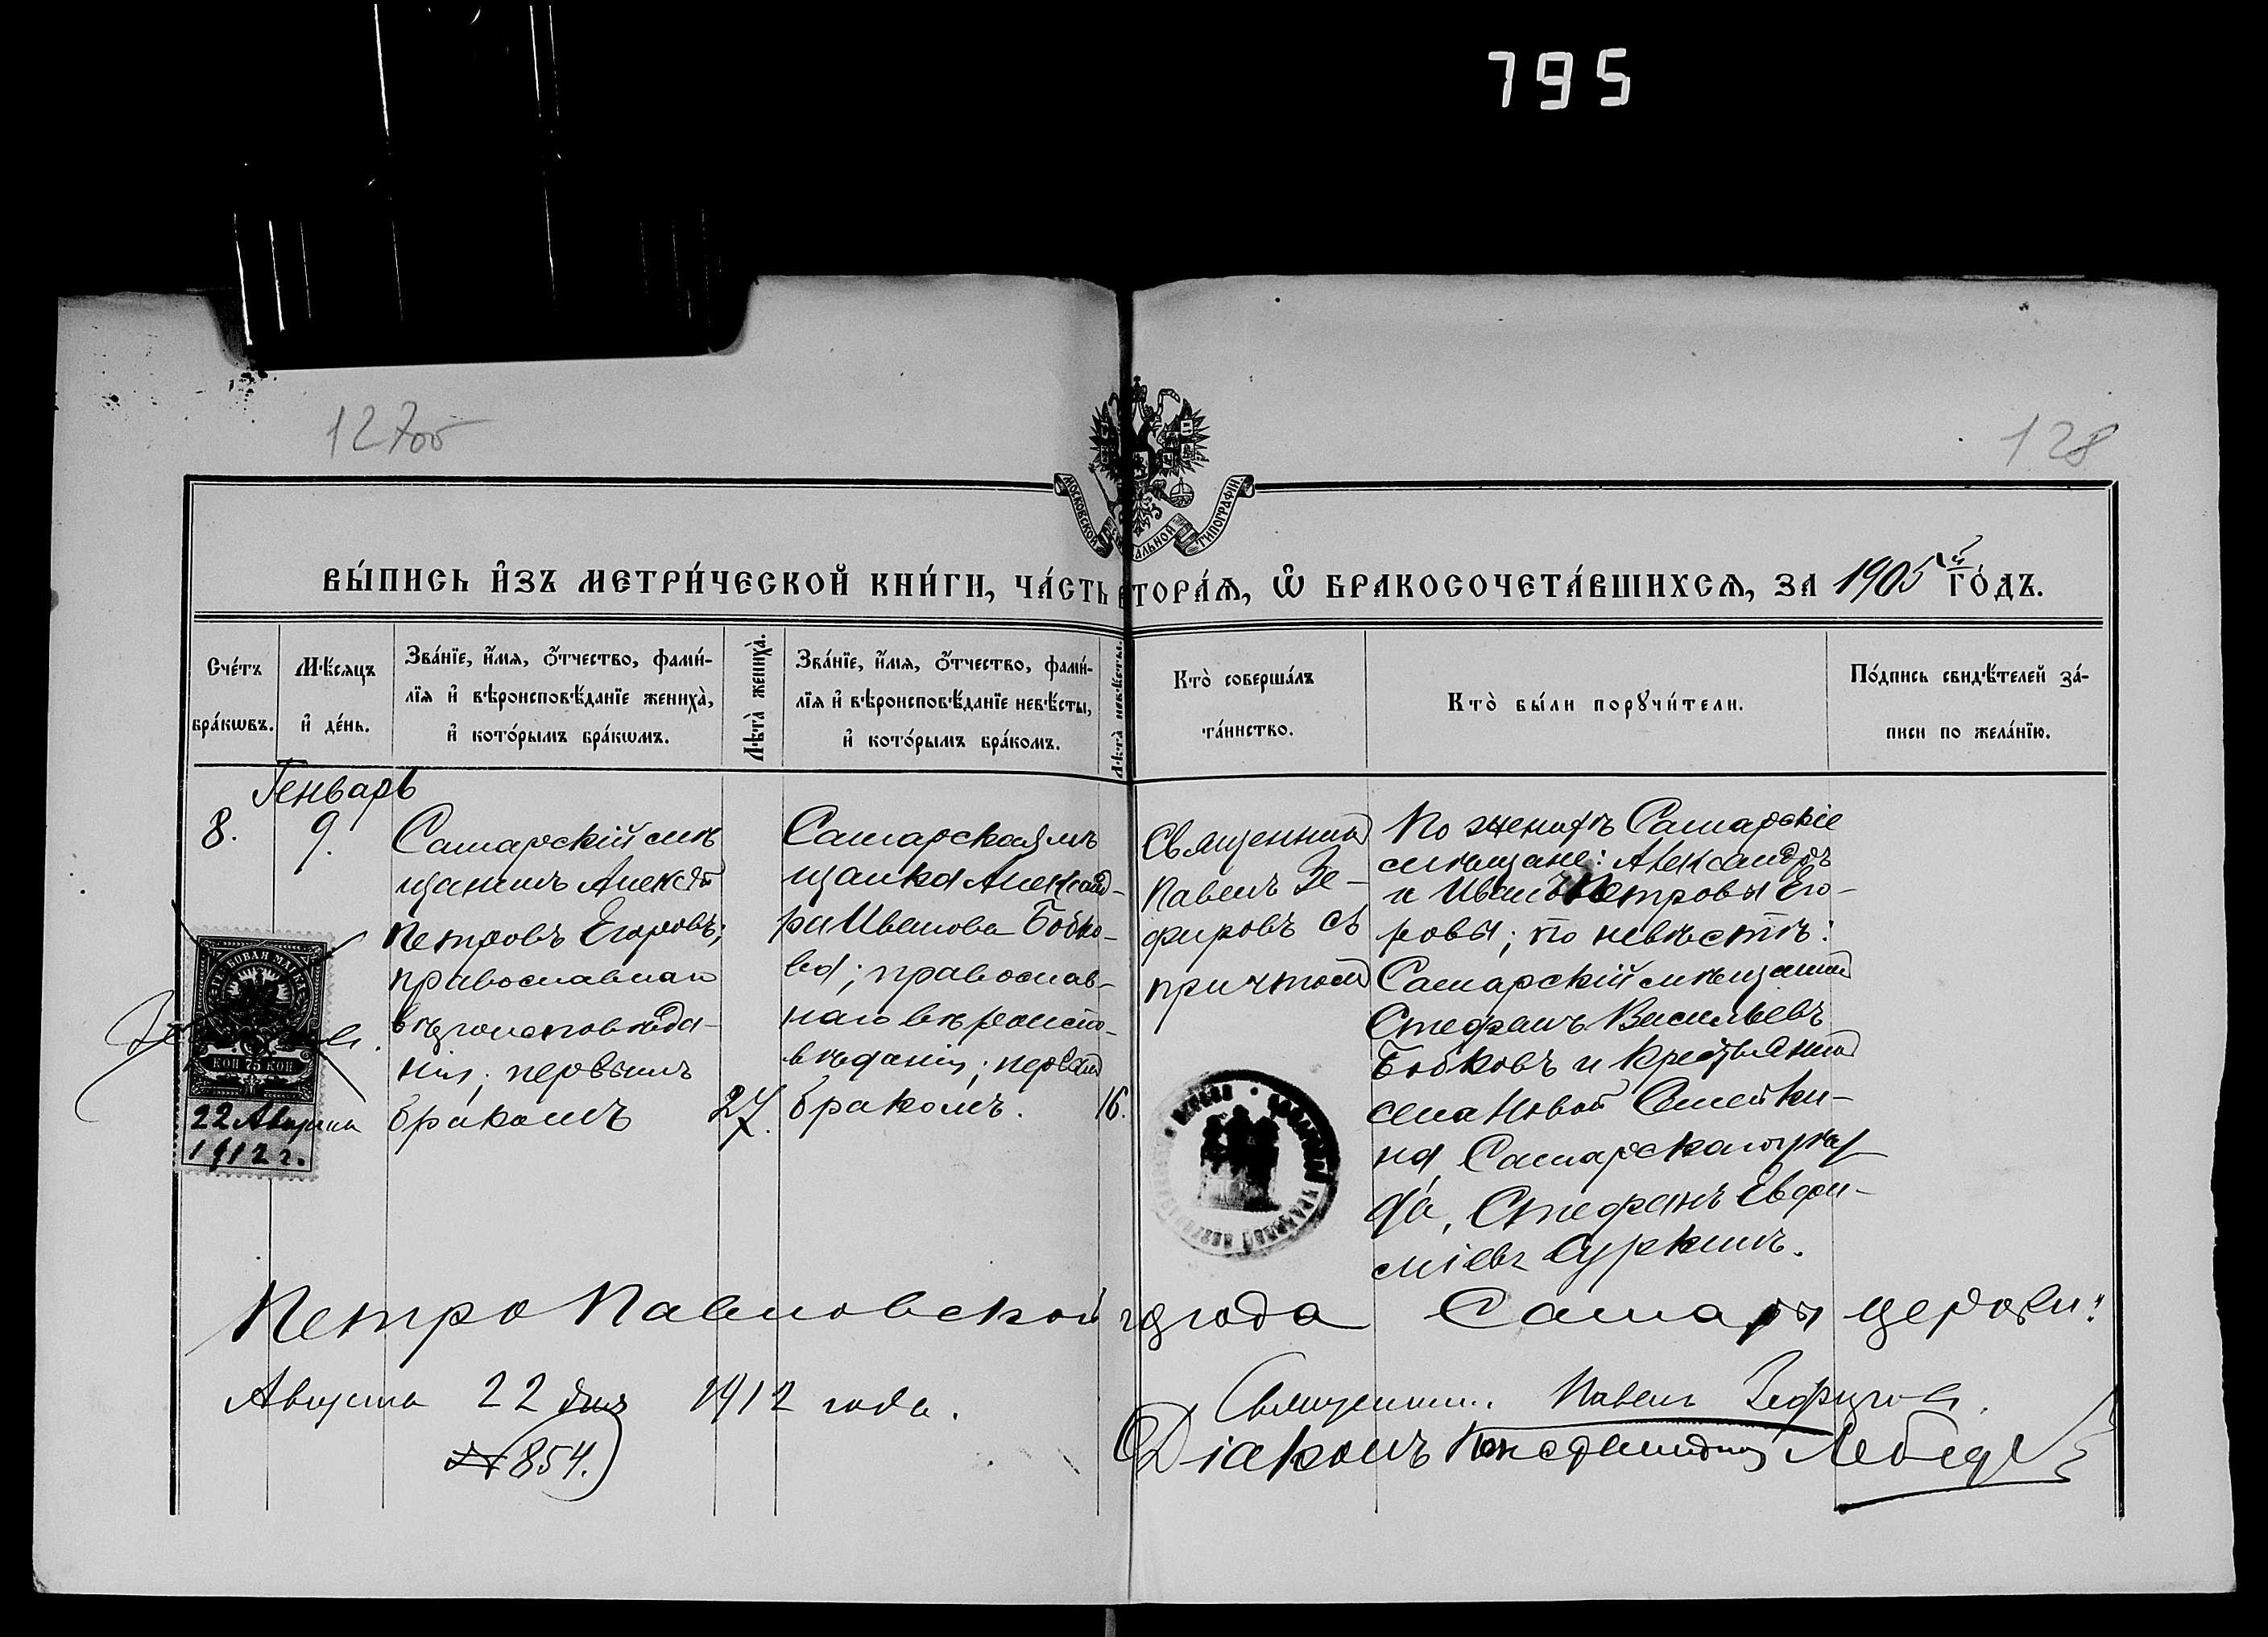 795
12700
128
МОСКОВСКОЙ СѴНОДАЛЬНОЙ ТИПОГРАФІИ
ВЫ́ПИСЬ И҆ЗЪ МЕТРИ́ЧЕСКОЙ КНИ́ГИ, ЧА́СТЬ ВТОРА́Ѧ, Ѡ҆ БРАКОСОЧЕТА́ВШИХСѦ, ЗА 1905й ГО́ДЪ.
Сче́тъ
бра́кωвъ.
Мѣ́сяцъ
и҆ де́нь.
Зва́нїе, и҆́мѧ, ѻ҆́тчество, фами́-
лїѧ и҆ вѣроисповѣ́данїе жениха̀,
и҆ кото́рымъ бра́кωмъ.
Лѣта̀ жениха̀.
Зва́нїе, и҆́мѧ, ѻ҆́тчество, фами́-
лїѧ и҆ вѣроисповѣ́данїе невѣ́сты,
и҆ кото́рымъ бра́комъ.
Лѣта̀ невѣ́сты.
Кто̀ соверша́лъ
та́инство.
Кто̀ бы́ли порꙋчи́тели.
По́дпись свидѣ́телей за́-
писи по жела́нїю.
Генварь
8.
9.
Самарскій мѣ
щанинъ Алексѣй
Петровъ Егоровъ;
православнаго
вѣроисповѣда-
нія; первымъ
бракомъ
27.
Самарская мѣ
щанка Александ-
ра Иванова Бобко-
ва; православ-
наго вѣроиспо-
вѣданія; первым
бракомъ.
16.
Священник
Павелъ Зе-
фировъ съ
причтом
По женихѣ Самарскіе
мѣщане: Александръ
и Иванъ Петровы Его-
ровы; по невѣстѣ:
Самарскій мѣщанин
Стефанъ Васильевъ
Бобковъ и крестьянин
села Новой Семейки-
на, Самарскаго уѣз
да, Стефанъ Евфи-
міевъ Суркинъ.
ГЕРБОВАЯ МАРКА
КОП 75 КОП
22 Августа
1912 г.
Петро Павловской города Самары церкви:
Августа 22 дня 1912 года.
Священник Павелъ Зефировъ.
№ 854.
Діаконъ Константинъ Лебедевъ